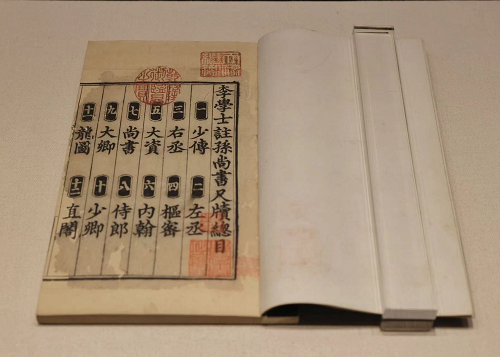 李學士註孫尚書尺牘總目
一 少傅 二 左丞
三 右丞 四 樞密
五 大資 六 內翰
七 尚書 八 侍郎
九 大卿 十 少卿
十一 龍圖 十二 直閣